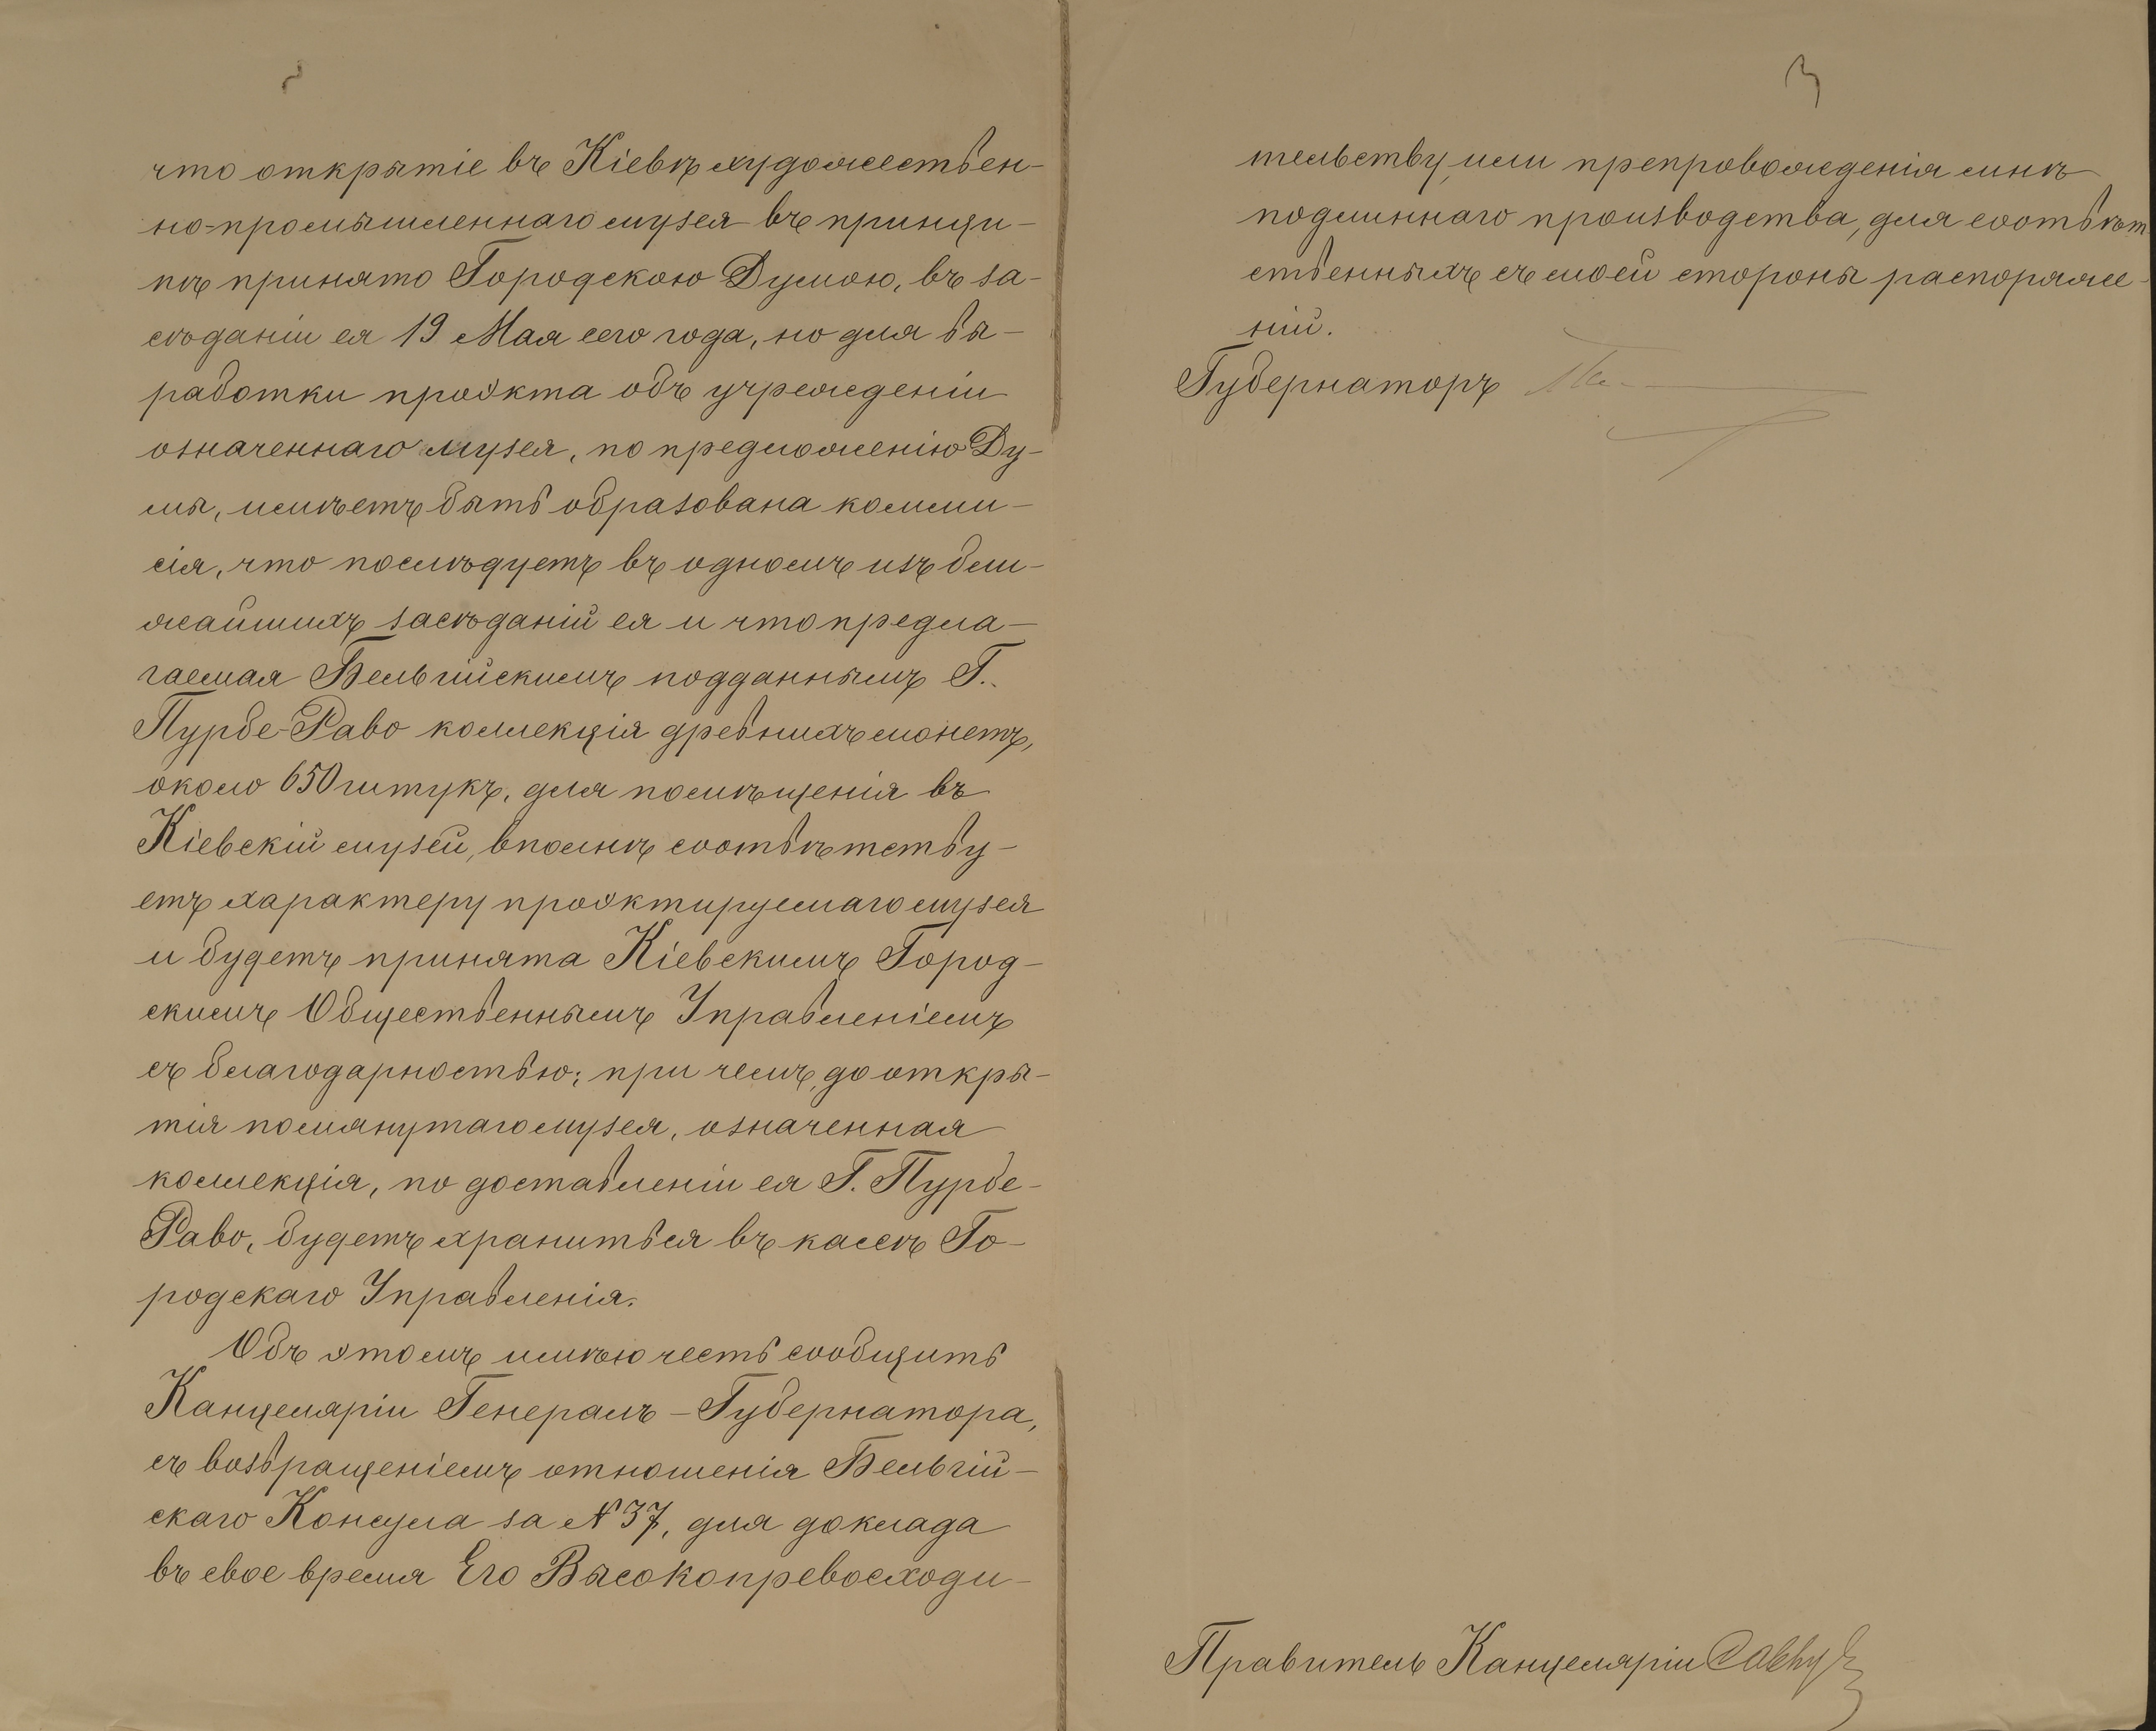 что открытіе въ Кіевѣ художествен-
но-промышленнаго музея въ принци-
пѣ принято Городскою Думою, въ за-
сѣданіи ея 19 Мая сего года, но для вы-
работки проэкта объ учрежденіи
означеннаго музея, по предложенію Ду-
мы, имѣетъ быть образована комми-
сія, что послѣдуетъ въ одномъ изъ бли-
жайшихъ засѣданій ея и что предла-
гаемая Бельгійскимъ подданнымъ Г.
Пурбе-Раво коллекція древнихъ монетъ,
около 650 штукъ, для помѣщенія въ
Кіевскій музей, вполнѣ соотвѣтству-
етъ характеру проэктируемаго музея
и будетъ принята Кіевскимъ Город-
скимъ Общественнымъ Управленіемъ
съ благодарностью; при чемъ, до откры-
тія помянутаго музея, означенная
коллекція, по доставленіи ея Г. Пурбе-
Раво, будетъ храниться въ кассѣ Го-
родскаго Управленія.
Объ этомъ имѣю честь сообщить
Канцеляріи Генералъ-Губернатора,
съ возвращеніемъ отношенія Бельгій-
скаго Консула за № 37, для доклада
въ свое время Его Высокопревосходи-
3
тельству, или препровожденія мнѣ
подлиннаго производства, для соотвѣт-
ственныхъ съ моей стороны распоряже-
ній.
Губернаторъ
Правитель Канцеляріи